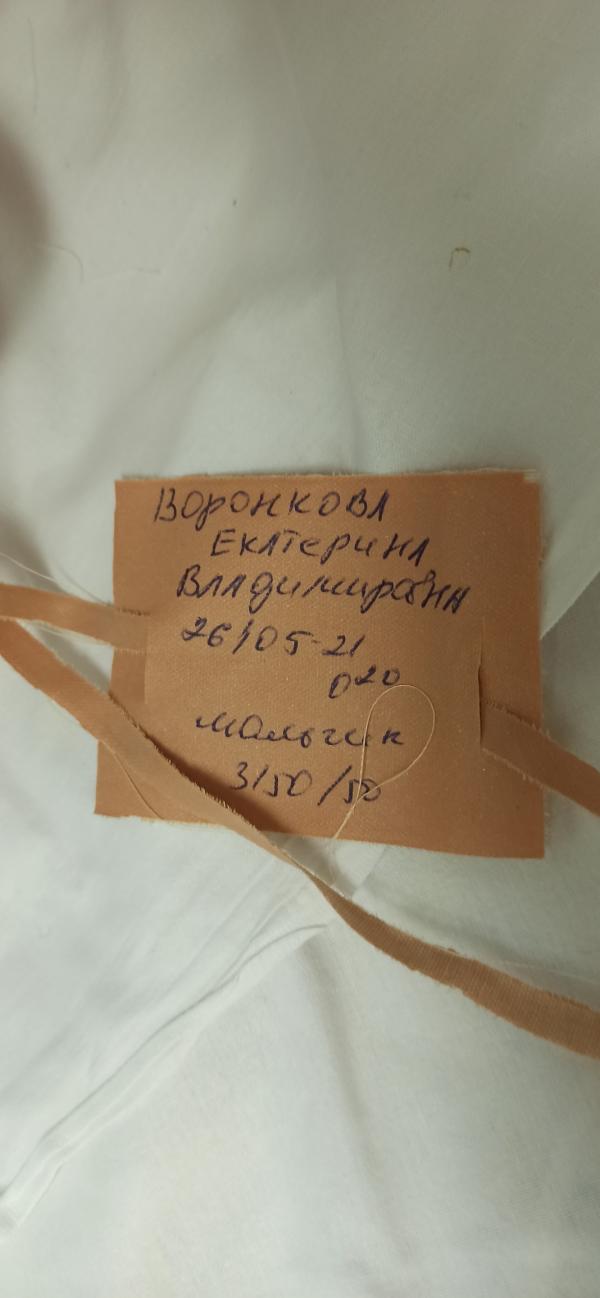 Воронкова
Екатерина
Владимировна
26/05-21
0 20
мальчик
3150/50